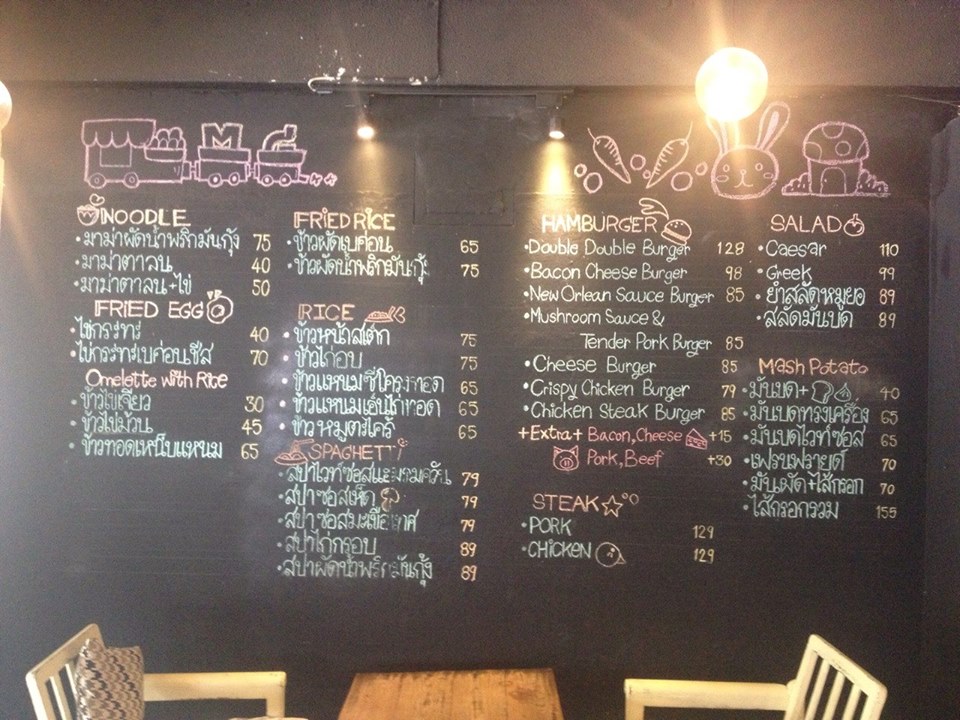 M
NOODLE
•มาม่าผัดน้ำพริกมันกุ้ง 75
•มาม่าตาลน 40
•มาม่าตาลน+ไข่ 50
FRIED EGG
•ไข่กระทะ 40
•ไข่กระทะเบค่อนชีส 70
Omelette with Rice
•ข้าวไข่เจียว 30
•ข้าวไข่ม้วน 45
•ข้าวทอดเหนียบแหนม 65
FRIED RICE
•ข้าวผัดเบค่อน 65
•ข้าวผัดน้ำพริกมันกุ้ง 75
RICE
•ข้าวหน้าสเต็ก 75
•ข้าวไก่อบ 75
•ข้าวแหนมซี่โครงทอด 65
•ข้าวแหนมเอ็นไก่ทอด 65
•ข้าวหมูตะไคร้ 65
SPAGHETTI
•สปาไวท์ซอสแฮมรมควัน 79
•สปาซอสเห็ด 79
•สปาซอสมะเขือเทศ 79
•สปาไก่กรอบ 89
•สปาผัดน้ำพริกมันกุ้ง 89
HAMBURGER
•Double Double Burger 128
•Bacon Cheese Burger 98
•New Orlean Sauce Burger 85
•Mushroom Sauce &
Tender Pork Burger 85
•Cheese Burger 85
•Crispy Chicken Burger 79
•Chicken Steak Burger 85
+Extra+ Bacon,Cheese +15
Pork,Beef +30
STEAK
•PORK 129
•CHICKEN 129
SALAD
•Caesar 110
•Greek 99
•ยำสลัดหมูยอ 89
•สลัดมันบด 89
Mash Potato
•มันบด+ 40
•มันบดทรงเครื่อง 65
•มันบดไวท์ซอส 65
•เฟรนฟรายด์ 70
•มันผัด+ไส้กรอก 70
•ไส้กรอกรวม 155